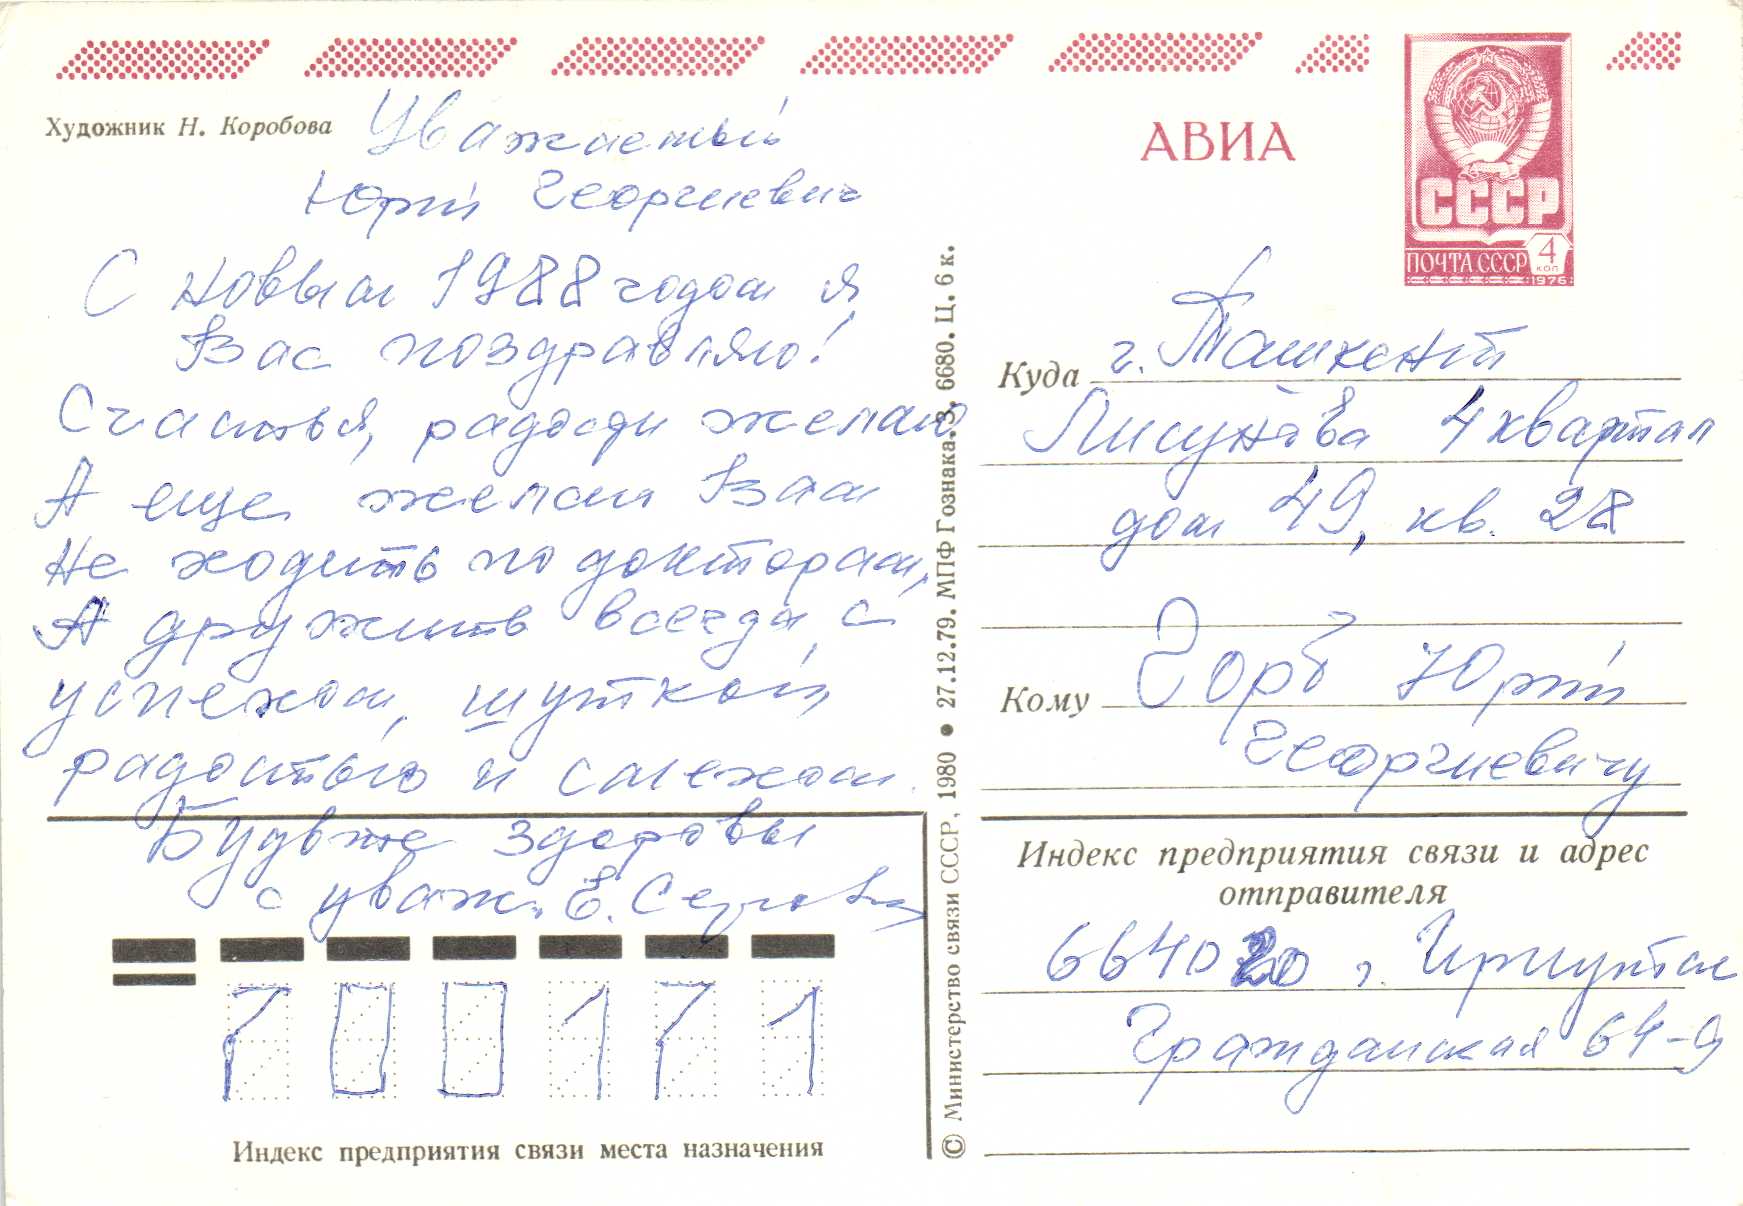 Художник Н. Коробова
Уважаемый
Юрий Георгиевич
С новым 1988 годом я
Вас поздравляю!
Счастья, радости желаю
А еще желаю Вам
Не ходить по докторам,
А дружить всегда с
успехом, шуткой
радостью и смехом.
Будьте здоровы
с уваж. Е.
Индекс предприятия связи места назначения
700171
© Министерство связи СССР, 1980 • 27.12.79. МПФ Гознака. З. 6680. Ц. 6 к.
АВИА
СССР
ПОЧТА СССР
4
КОП
1976
Куда г. Ташкент
Лисунова 4 квартал
дом 49, кв. 28
Кому Горб Юрий
Георгиевичу
Индекс предприятия связи и адрес
отправителя
664020, Иркутск
Гражданская 64-9